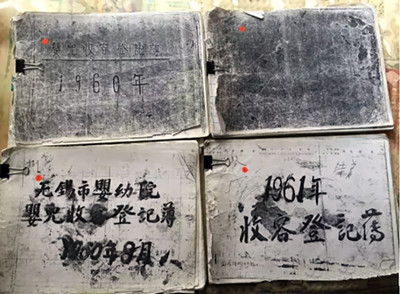 嬰兒收容登記簿
1960年
无锡市嬰幼院
嬰兒收容登記薄
1960年8月
1961年
收容登記薄